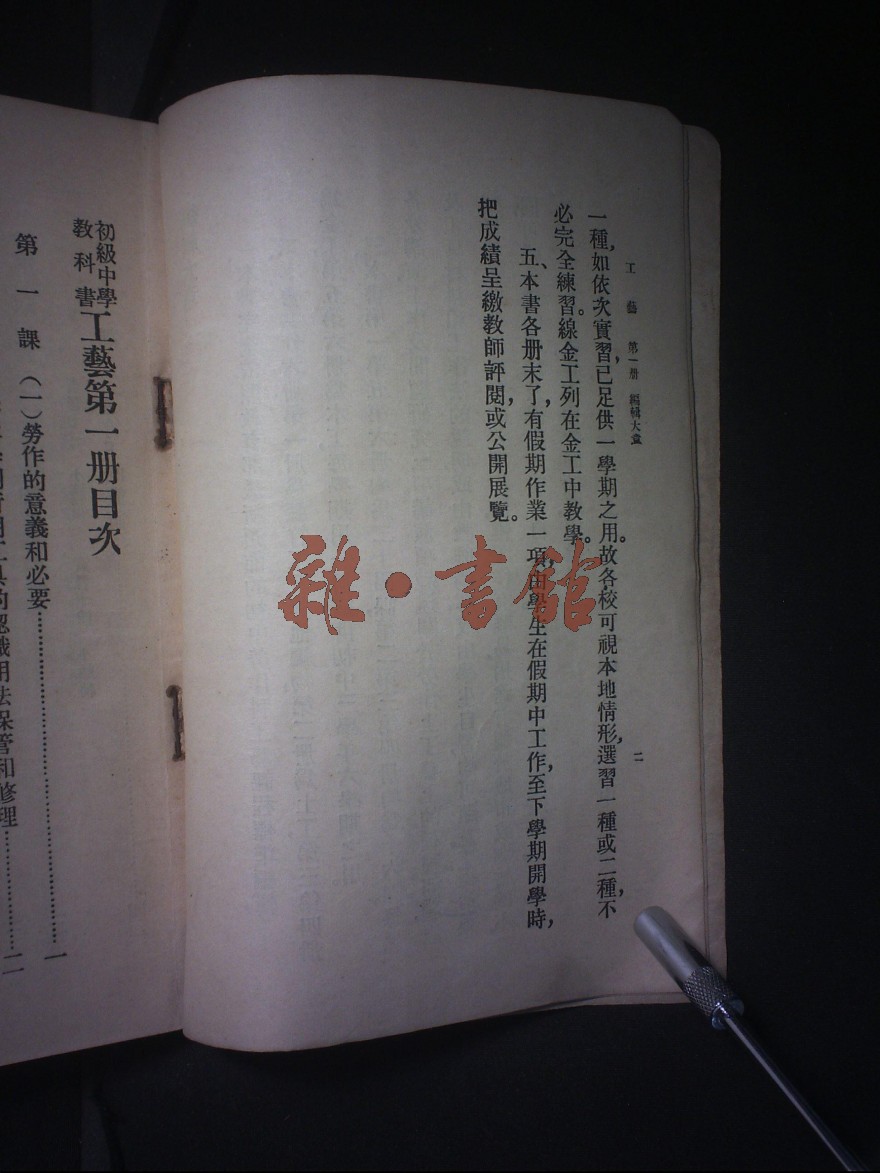 工藝 第一册 編輯大意 二
一種，如依次實習，已足供一學期之用。故各校可視本地情形，選習一種或二種，不
必完全練習。線金工列在金工中教學。
五、本書各册末了，有假期作業一項，由學生在假期中工作，至下學期開學時，
把成績呈繳教師評閱，或公開展覽。
雜·書館
初級中學
教科書
工藝第一册目次
第一課 （一）勞作的意義和必要……………………一
用工具的認識用法保管和修理…………二